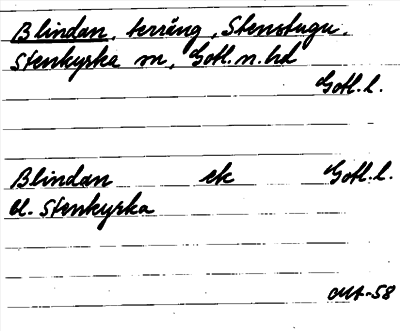 Blindan, terräng, Stenstugu,
Stenkyrka sn, Gotl. n. hd
Gotl. l.
Blindan ek Gotl. l.
bl. Stenkyrka
-58